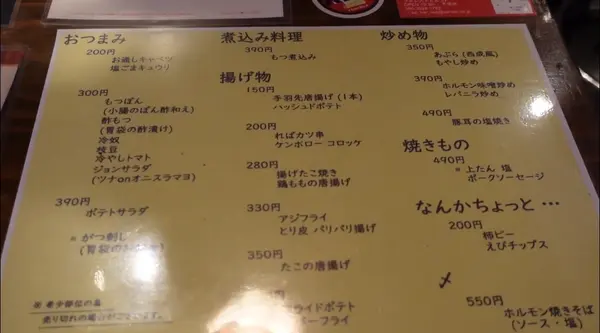 おつまみ
200円
お通しキャベツ
塩ごまキュウリ
300円
もつぽん
(小腸のぽん酢和え)
酢もつ
(胃袋の酢漬け)
冷奴
枝豆
冷やしトマト
ジョンサラダ
(ツナonオニスラマヨ)
390円
ポテトサラダ
※ がつ刺し
(胃袋の
※ 希少部位の為
売り切れの場合がございます。
煮込み料理
390円
もつ煮込み
揚げ物
150円
手羽先唐揚げ (1本)
ハッシュドポテト
200円
ればカツ串
ケンボロー コロッケ
280円
揚げたこ焼き
鶏ももの唐揚げ
330円
アジフライ
とり皮 パリパリ揚げ
350円
たこの唐揚げ
フライドポテト
ーフライ
炒め物
350円
あぶら (西成風)
もやし炒め
390円
ホルモン味噌炒め
レバニラ炒め
490円
豚耳の塩焼き
焼きもの
490円
※ 上たん 塩
ポークソーセージ
なんかちょっと…
200円
柿ピー
えびチップス
〆
550円
ホルモン焼きそば
(ソース・塩)